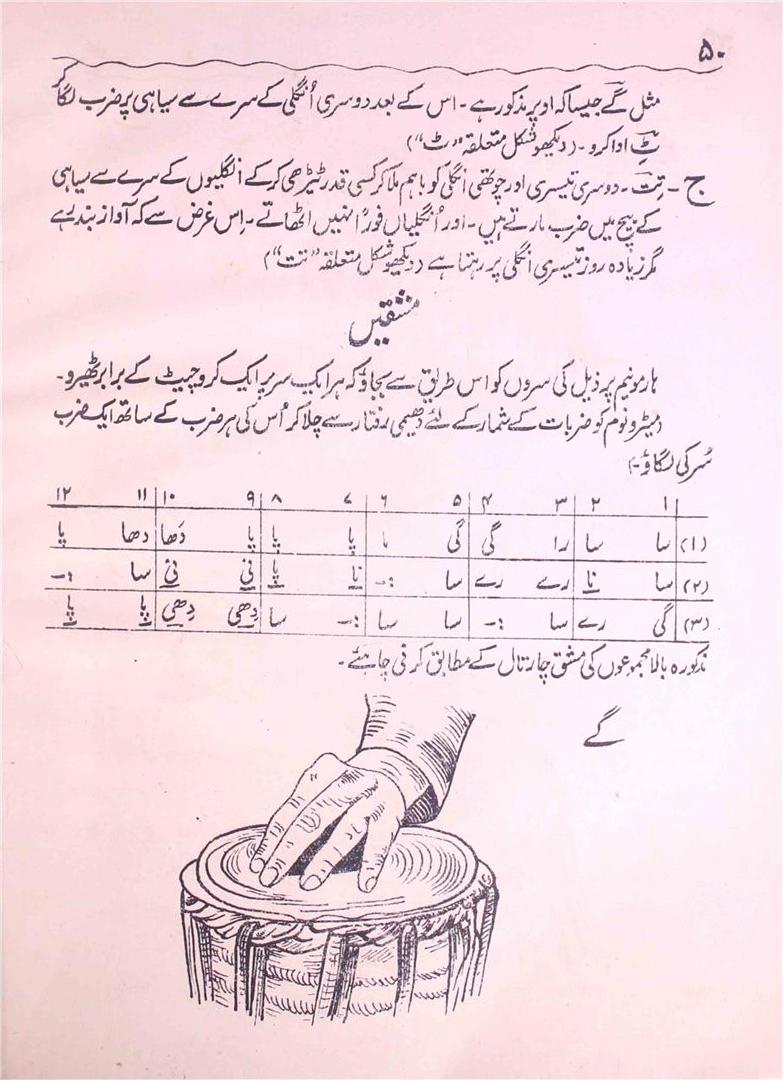 ۵۰
مثل گے جیسا کہ اوپر مذکور ہے۔ اس کے بعد دوسری اُنگلی کے سرے سے سیاہی پر ضرب لگا کر
ٹِ ادا کرو۔ (دیکھو شکل متعلقہ "ٹ")
ج۔ تِت۔ دوسری تیسری اور چوتھی انگلی کو باہم ملا کر کسی قدر ٹیڑھی کر کے انگلیوں کے سرے سے سیاہی
کے بیچ میں ضرب مارتے ہیں۔ اور اُنگلیاں فوراً نہیں اٹھاتے۔ اِس غرض سے کہ آواز بند رہے
مگر زیادہ روز تیسری انگلی پر رہتا ہے (دیکھو شکل متعلقہ "تت")
مشقیں
ہارمونیم پر ذیل کی سروں کو اس طریق سے بجاؤ کہ ہر ایک سر پر ایک کروچیٹ کے برابر ٹھیرو۔
میٹرونوم کو ضربات کے شمار کے لئے دھیمی رفتار سے چلا کر اُس کی ہر ضرب کے ساتھ ایک ضرب
سُر کی لگاؤ۔
۱ ۲ ۳ ۴ ۵ ۶ ۷ ۸ ۹ ۱۰ ۱۱ ۱۲
(۱) سا سا را گی گی ما پا پا پا دھا دھا پا
(۲) سا نا رے رے سا :- نا پا نی نی سا :-
(۳) گی رے سا :- سا سا :- سا دِھی دِھی پا پا
مذکورہ بالا مجموعوں کی مشق چارتال کے مطابق کرنی چاہئے۔
گے